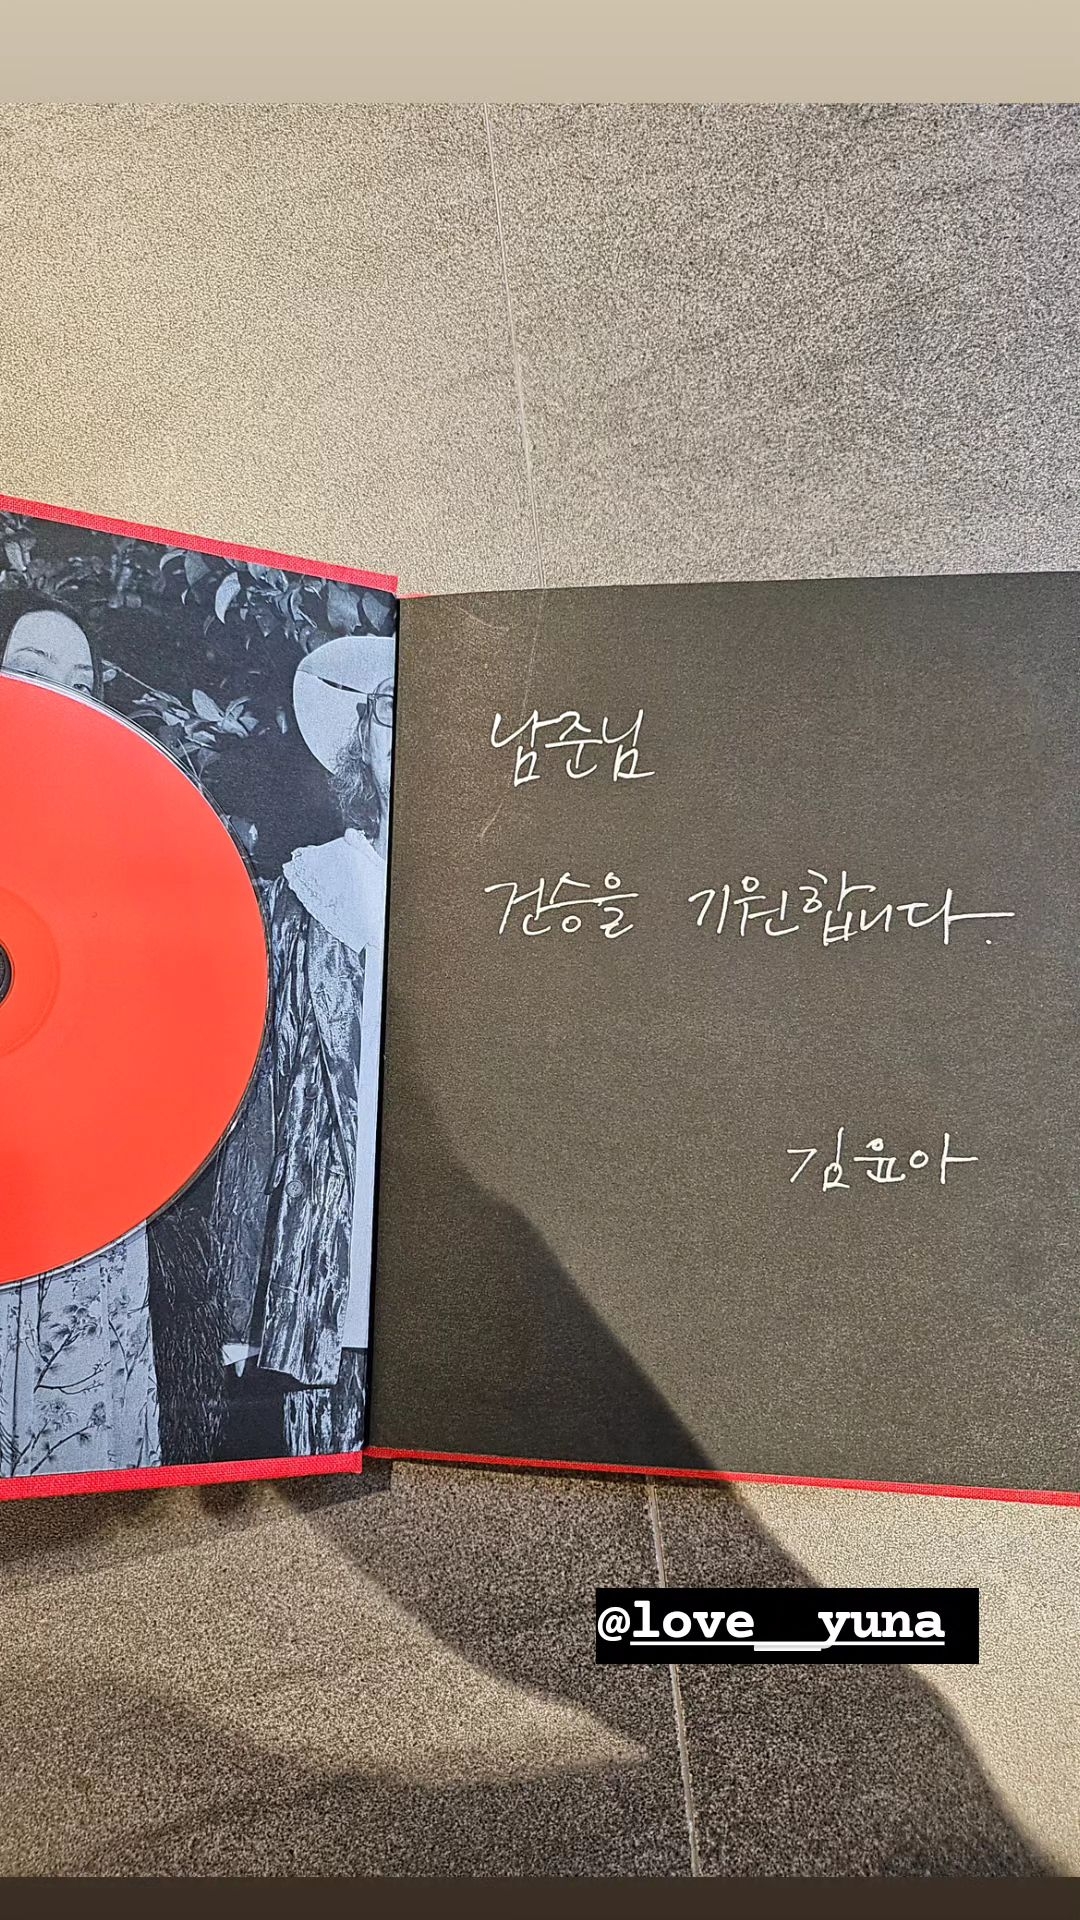 남준님
건승을 기원합니다.
김윤아
@love__yuna